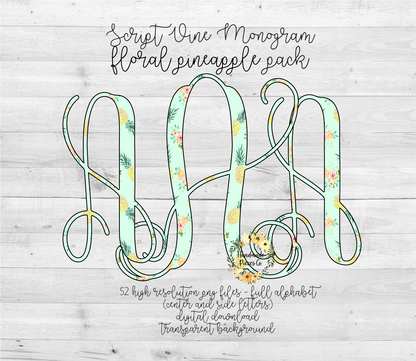 Script Vine Monogram
floral pineapple pack
AAA
52 high resolution png files - full alphabet
(center and side letters)
digital download
Transparent background